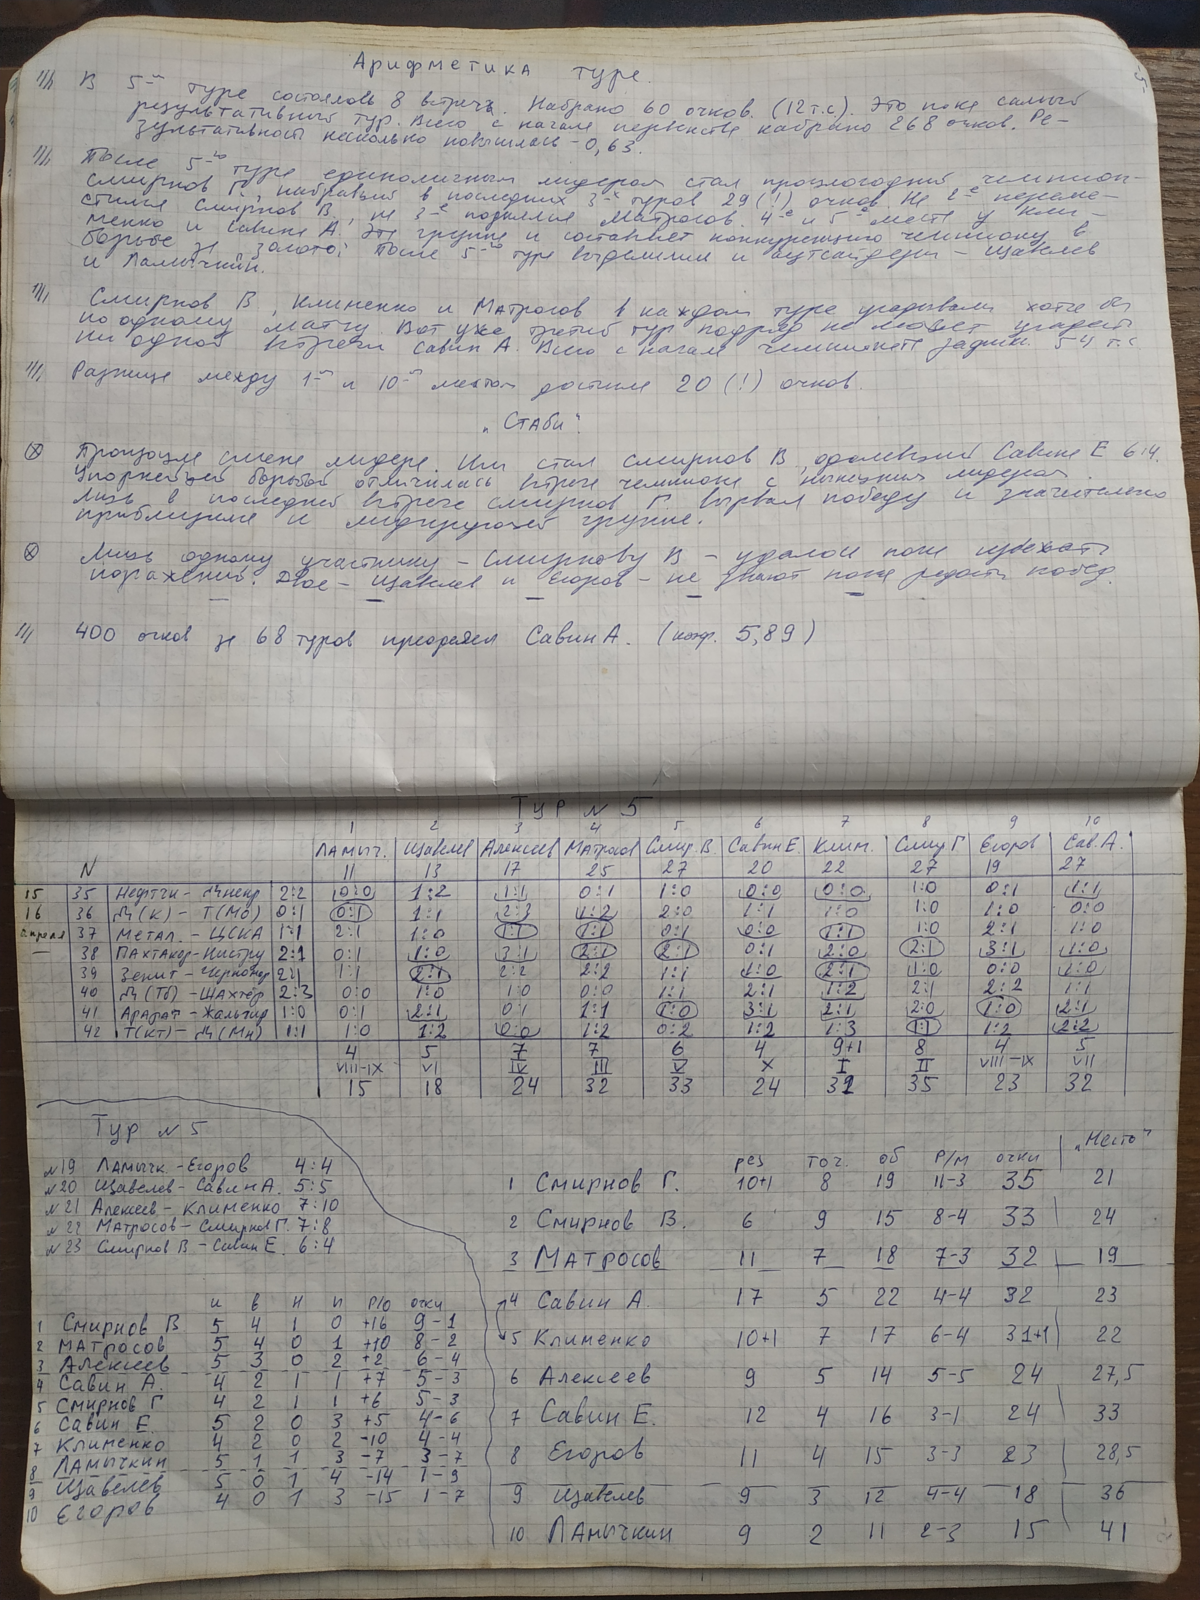 Арифметика тура.
В 5-м туре состоялось 8 встреч. Набрано 60 очков. (12 т.с). Это пока самый
результативный тур. Всего с начала первенства набрано 268 очков. Ре-
зультативность несколько повысилась - 0,63.
После 5-го тура единоличным лидером стал прошлогодний чемпион -
Смирнов Г, набравший в последних 3-х турах 29 (!) очков. На 2-е переме-
стился Смирнов В, на 3-е поднялся Матросов. 4-е и 5-е места у Кли-
менко и Савина А. Эта группа и составляет конкуренцию чемпиону в
борьбе за "золото". После 5-го тура выделились и аутсайдеры - Щавелев
и Ламычкин.
Смирнов В, Клименко и Матросов в каждом туре угадывали хотя бы
по одному матчу. Вот уже третий тур подряд не может угадать
ни одной встречи Савин А. Всего с начала чемпионата 54 т.с
Разница между 1-м и 10-м местом достигла 20 (!) очков.
"Стаби".
Произошла смена лидера. Им стал Смирнов В, одолевший Савина Е 6:4.
Упорнейшей борьбой отличилась встреча чемпиона с нынешним лидером.
Лишь в последней встрече Смирнов Г. вырвал победу и значительно
приблизился к лидирующей группе.
Лишь одному участнику - Смирнову В - удалось пока избежать
поражений. Двое - Щавелев и Егоров - не знают пока радости побед.
400 очков за 68 туров преодолел Савин А. (коэф. 5,89)
Тур № 5
1 2 3 4 5 6 7 8 9 10
Ламыч. Щавелев Алексеев Матросов Смир. В. Савин Е. Клим. Смир Г Егоров Сав. А.
N 11 13 17 25 27 20 22 27 19 27
15 35 Нефтчи - Днепр 2:2 0:0 1:2 1:1 0:1 1:0 0:0 0:0 1:0 0:1 1:1
16 36 Д(К) - Т(Мо) 0:1 0:1 1:1 2:3 1:2 2:0 1:1 1:0 1:0 1:0 0:0
апреля 37 Метал. - ЦСКА 1:1 2:1 1:0 1:1 1:1 0:1 0:0 1:1 1:0 2:1 1:0
38 Пахтакор - Нистру 2:1 0:1 1:0 3:1 2:1 2:1 0:1 2:0 2:1 3:1 1:0
39 Зенит - Черномор 2:1 1:1 2:1 2:2 2:2 1:1 1:0 2:1 1:0 0:0 1:0
40 Д(Тб) - Шахтёр 2:3 0:0 1:0 1:0 0:0 1:1 2:1 1:2 2:1 2:2 1:1
41 Арарат - Жальгир 1:0 0:1 2:1 0:1 1:1 1:0 3:1 2:1 2:0 1:0 2:1
42 Т(КТ) - Д(Мн) 1:1 1:0 1:2 0:0 1:2 0:2 1:2 1:3 1:1 1:2 2:2
4 5 7 7 6 4 9+1 8 4 5
VIII-IX VI IV III V X I II VIII-IX VII
15 18 24 32 33 24 32 35 23 32
Тур № 5
№19 Ламычк. - Егоров 4:4
№20 Щавелев - Савин А. 5:5
№21 Алексеев - Клименко 7:10
№22 Матросов - Смирнов Г. 7:8
№23 Смирнов В - Савин Е. 6:4
и в н п р/о очки
1 Смирнов В 5 4 1 0 +16 9-1
2 Матросов 5 4 0 1 +10 8-2
3 Алексеев 5 3 0 2 +2 6-4
4 Савин А. 4 2 1 1 +7 5-3
5 Смирнов Г 4 2 1 1 +6 5-3
6 Савин Е 5 2 0 3 +5 4-6
7 Клименко 4 2 0 2 -10 4-4
8 Ламычкин 5 1 1 3 -7 3-7
9 Щавелев 5 0 1 4 -14 1-9
10 Егоров 4 0 1 3 -15 1-7
рез точ. об р/м очки "Место"
1 Смирнов Г. 10+1 8 19 11-3 35 21
2 Смирнов В. 6 9 15 8-4 33 24
3 Матросов 11 7 18 7-3 32 19
4 Савин А. 17 5 22 4-4 32 23
5 Клименко 10+1 7 17 6-4 31+1 22
6 Алексеев 9 5 14 5-5 24 27,5
7 Савин Е. 12 4 16 3-1 24 33
8 Егоров 11 4 15 3-3 23 28,5
9 Щавелев 9 3 12 4-4 18 36
10. Ламычкин 9 2 11 2-3 15 41